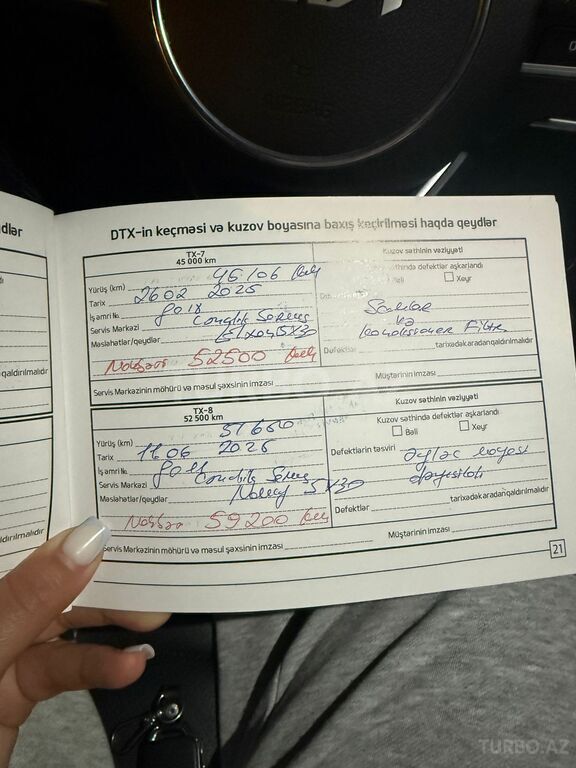 DTX-in keçməsi və kuzov boyasına baxış keçirilməsi haqda qeydlər
TX-7
45 000 km
Yürüş (km) 45 106
Tarix 26 02 2025
İş əmri №
Servis Mərkəzi
Məsləhətlər/qeydlər 5X30
52500
Servis Mərkəzinin möhürü və məsul şəxsin imzası
Kuzov səthinin vəziyyəti
səthində defektlər aşkarlandı
Bəli Xeyr
Salon
və
kondisioner Filtr
Defektlər tarixədək aradan qaldırılmalıdır
Müştərinin imzası
TX-8
52 500 km
Yürüş (km) 51660
Tarix 11 06 2025
İş əmri №
Servis Mərkəzi
Məsləhətlər/qeydlər 5X30
59200
Servis Mərkəzinin möhürü və məsul şəxsinin imzası
Kuzov səthinin vəziyyəti
Kuzov səthində defektlər aşkarlandı
Bəli Xeyr
Defektlərin təsviri əyləc mayesi
dəyişildi
Defektlər tarixədək aradan qaldırılmalıdır
Müştərinin imzası
21
TURBO.AZ